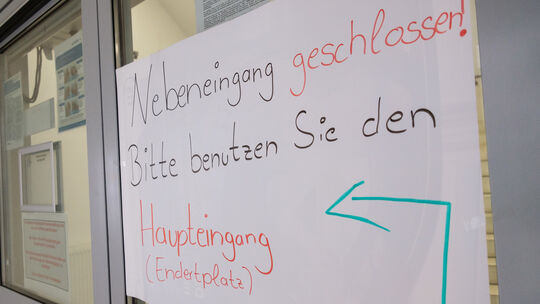 Nebeneingang geschlossen!
Bitte benutzen Sie den
Haupteingang
(Endertplatz)